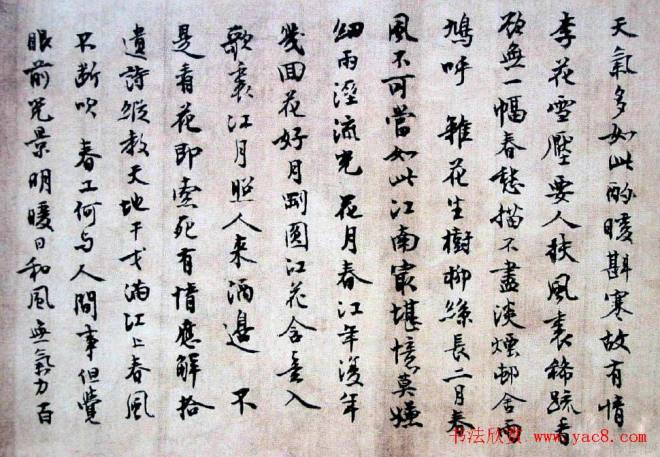 天氣多如此酌暖斟寒故有情
李花雪壓要人扶風裏稀疏香
欲無一幅春愁描不盡淡煙邨舍雨
鳩呼 雜花生樹柳絲長二月春
風不可當如此江南最堪憶莫嫌
細雨溼流光 花月春江年復年
幾回花好月剛圓江花含意入
歌裏江月照人来酒邊 不
是看花即索死有情應解拾
遺詩縱教天地干戈滿江上春風
不断吹 春工何与人間事但覺
眼前光景明暖日和風無氣力百
书法欣赏 www.yac8.com